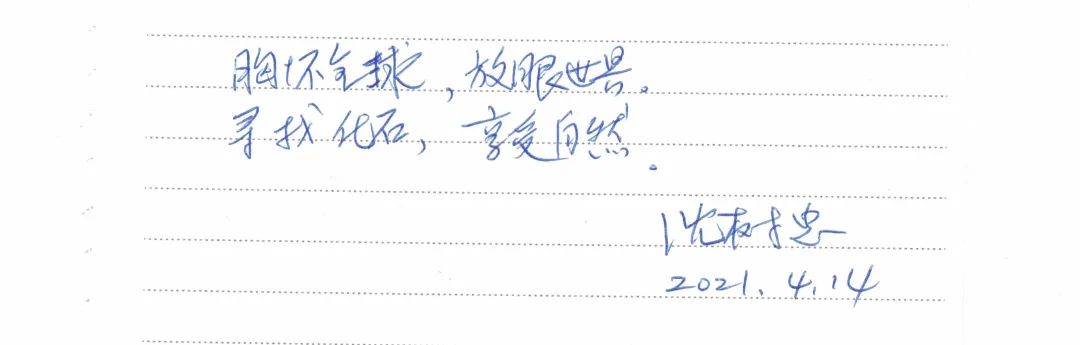 胸怀全球，放眼世界.
寻找化石，享受自然.
沈树忠
2021.4.14